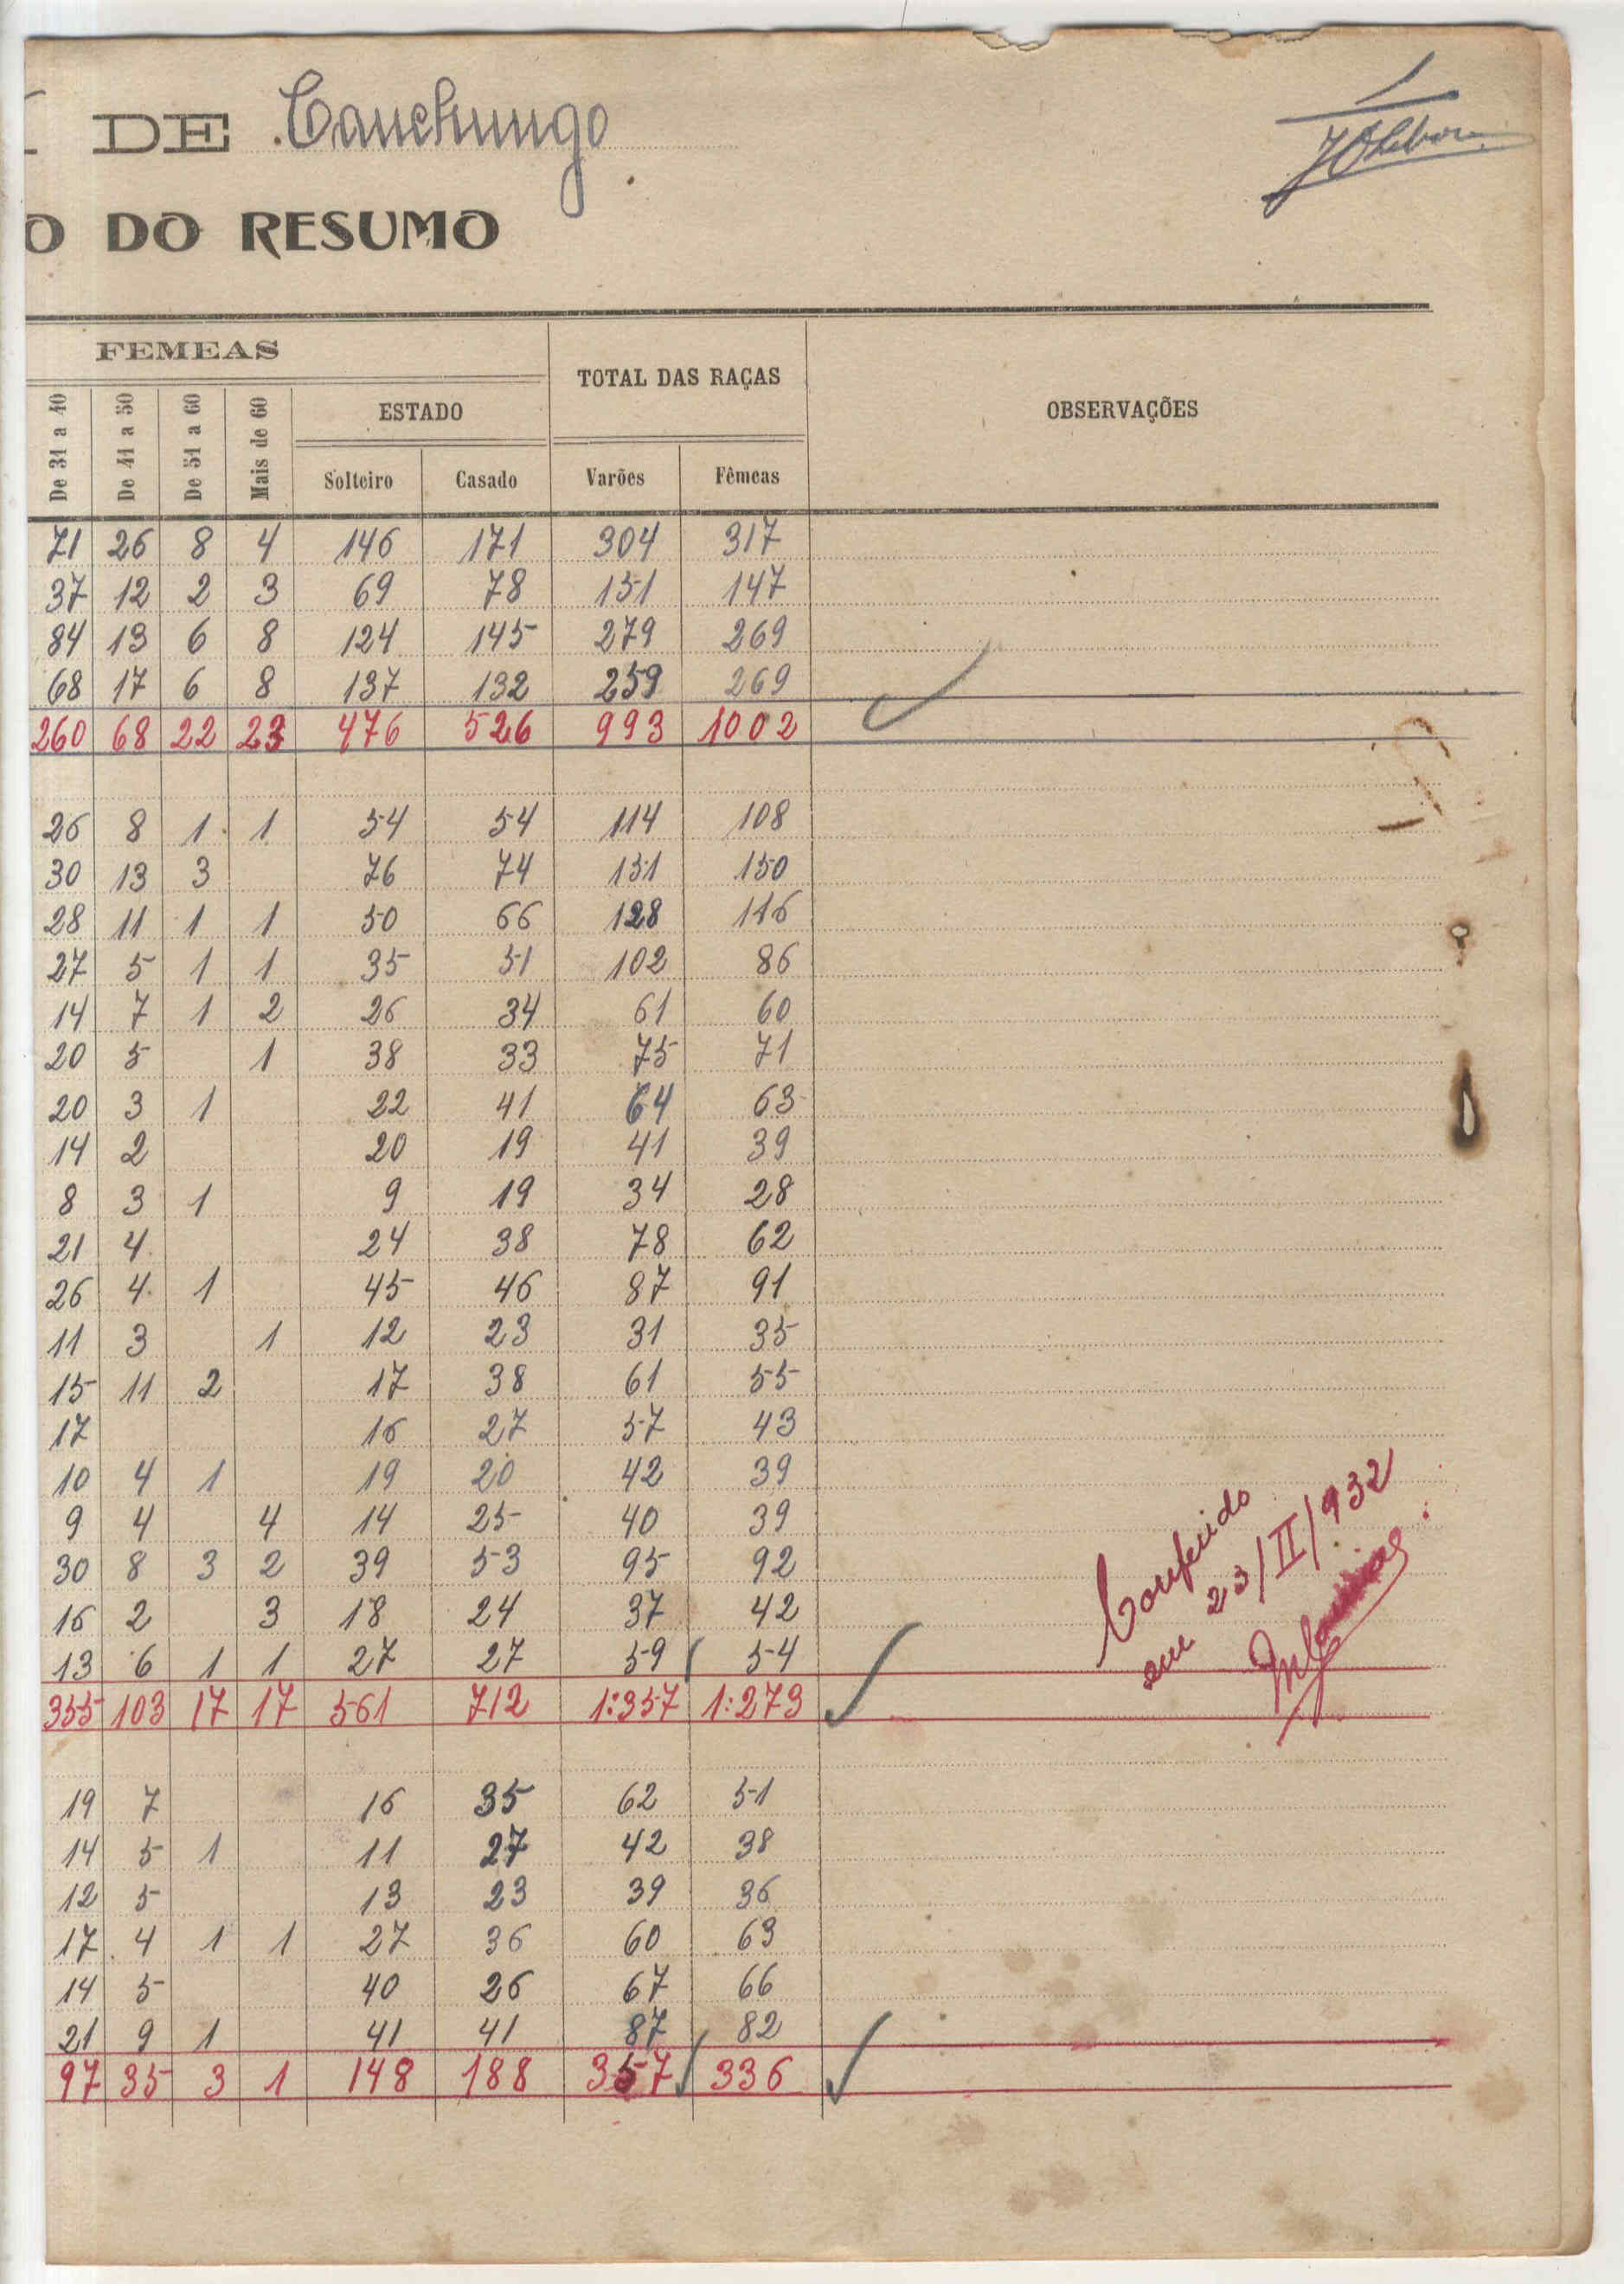 DE Canchungo
O DO RESUMO
FEMEAS
TOTAL DAS RAÇAS
OBSERVAÇÕES
ESTADO
De 31 a 40 De 41 a 50 De 51 a 60 Mais de 60 Solteiro Casado Varões Fêmeas
71 26 8 4 146 171 304 317
37 12 2 3 69 78 151 147
84 13 6 8 124 145 279 269
68 17 6 8 137 132 259 269
260 68 22 23 476 526 993 1002
26 8 1 1 54 54 114 108
30 13 3 76 74 151 150
28 11 1 1 50 66 128 116
27 5 1 1 35 51 102 86
14 7 1 2 26 34 61 60
20 5 1 38 33 75 71
20 3 1 22 41 64 63
14 2 20 19 41 39
8 3 1 9 19 34 28
21 4 24 38 78 62
26 4 1 45 46 87 91
11 3 1 12 23 31 35
15 11 2 17 38 61 55
17 16 27 57 43
10 4 1 19 20 42 39
9 4 4 14 25 40 39
30 8 3 2 39 53 95 92
16 2 3 18 24 37 42
13 6 1 1 27 27 59 54
355 103 17 17 561 712 1:357 1:273
Conferido
em 23/II/932
19 7 16 35 62 51
14 5 1 11 27 42 38
12 5 13 23 39 36
17 4 1 1 27 36 60 63
14 5 40 26 67 66
21 9 1 41 41 87 82
97 35 3 1 148 188 357 336